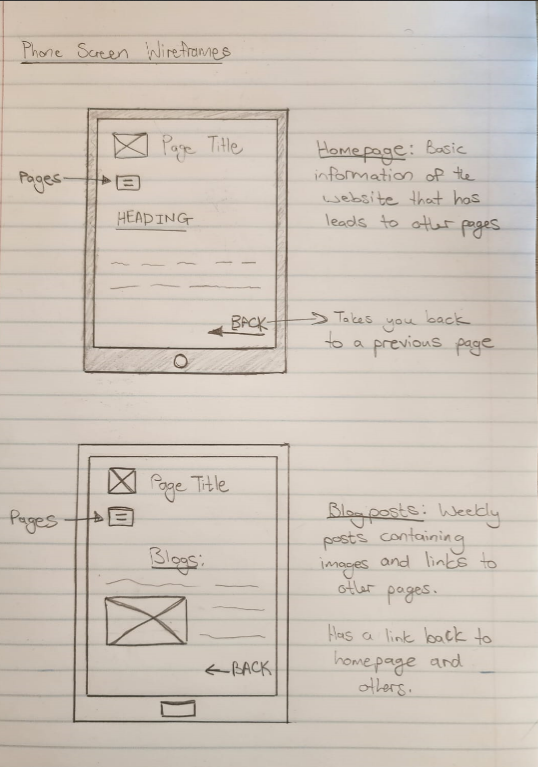 Phone Screen Wireframes
Page Title
Pages
HEADING
BACK
Homepage: Basic
information of the
website that has
leads to other pages
Takes you back
to a previous page
Page Title
Pages
Blogs:
BACK
Blog posts: Weekly
posts containing
images and links to
other pages.
Has a link back to
homepage and
others.